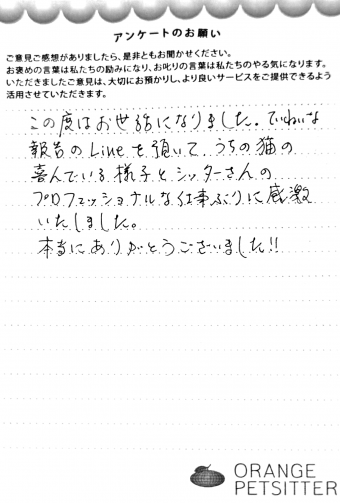 アンケートのお願い
ご意見ご感想がありましたら、是非ともお聞かせください。
お褒めの言葉は私たちの励みになり、お叱りの言葉は私たちのやる気になります。
いただきましたご意見は、大切にお預かりし、より良いサービスをご提供できるよう
活用させていただきます。
この度はお世話になりました。ていねいな
報告のLineを頂いて、うちの猫の
喜んでいる様子とシッターさんの
プロフェッショナルな仕事ぶりに感激
いたしました。
本当にありがとうございました!!
ORANGE
PETSITTER